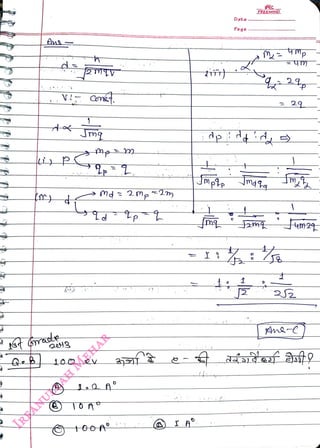 Date
Page
Ans —
λ = h / √2mqV
V :- Const.
λ ∝ 1 / √mq
(i) p → mp = m
→ qp = q
(ii) d → md = 2mp = 2m
→ qd = qp = q
(iii) α → mα = 4mp
= 4m
→ qα = 2qp
= 2q
λp : λd : λα ⇒
1/√mpqp : 1/√mdqd : 1/√mαqα
1/√mq : 1/√2mq : 1/√4m2q
= 1 : 1/√2 : 1/√8
= 1 : 1/√2 : 1/2√2
Ans-C
1st Grade
2013
Q.8 100 eV ऊर्जा के e- की तरंगदैर्ध्य होगी?
Ⓐ 1.2 A°
Ⓑ 10 A°
Ⓒ 100 A° Ⓓ 1 A°
IRFANULLAH MEHAR